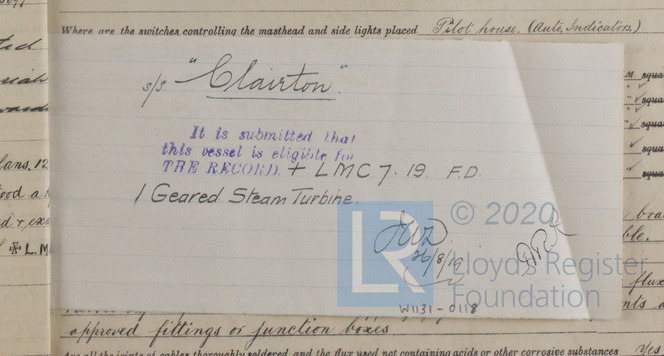 Where are the switches controlling the masthead and side lights placed Pilot house. (Auto. Indicators.)
s/s "Clairton".
It is submitted that
this vessel is eligible for
THE RECORD. + LMC 7. 19. F.D.
1 Geared Steam Turbine.
26/8/19
LR
© 2020
Lloyd's Register
Foundation
W1131-0118
approved fittings or junction boxes
Are all the joints of cables thoroughly soldered, and the flux used not containing acids or other corrosive substances Yes